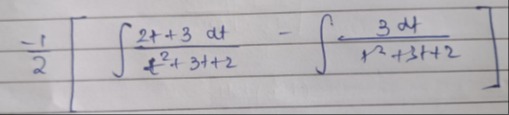 -1/2 [ ∫ 2t+3 dt / t²+3t+2 - ∫ 3 dt / t²+3t+2 ]